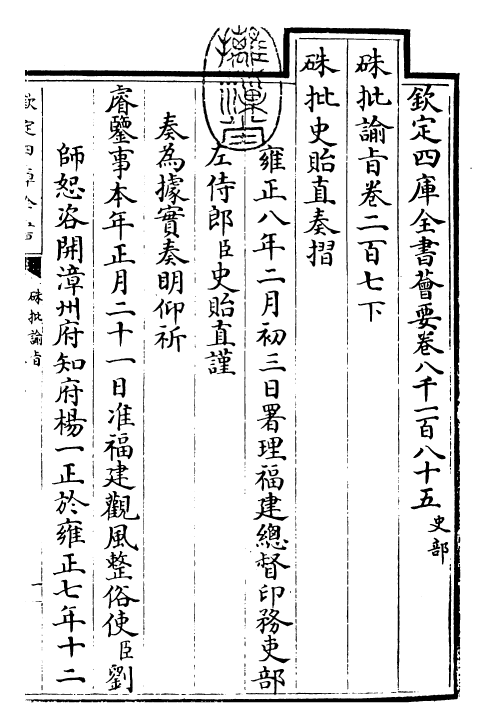 欽定四庫全書薈要卷八千一百八十五史部
硃批諭旨卷二百七下
硃批史貽直奏摺
雍正八年二月初三日署理福建總督印務吏部
左侍郎臣史貽直謹
奏為據實奏明仰祈
睿鑒事本年正月二十一日准福建觀風整俗使臣劉
師恕咨開漳州府知府楊一正於雍正七年十二
欽定四庫全書
硃批諭旨
一